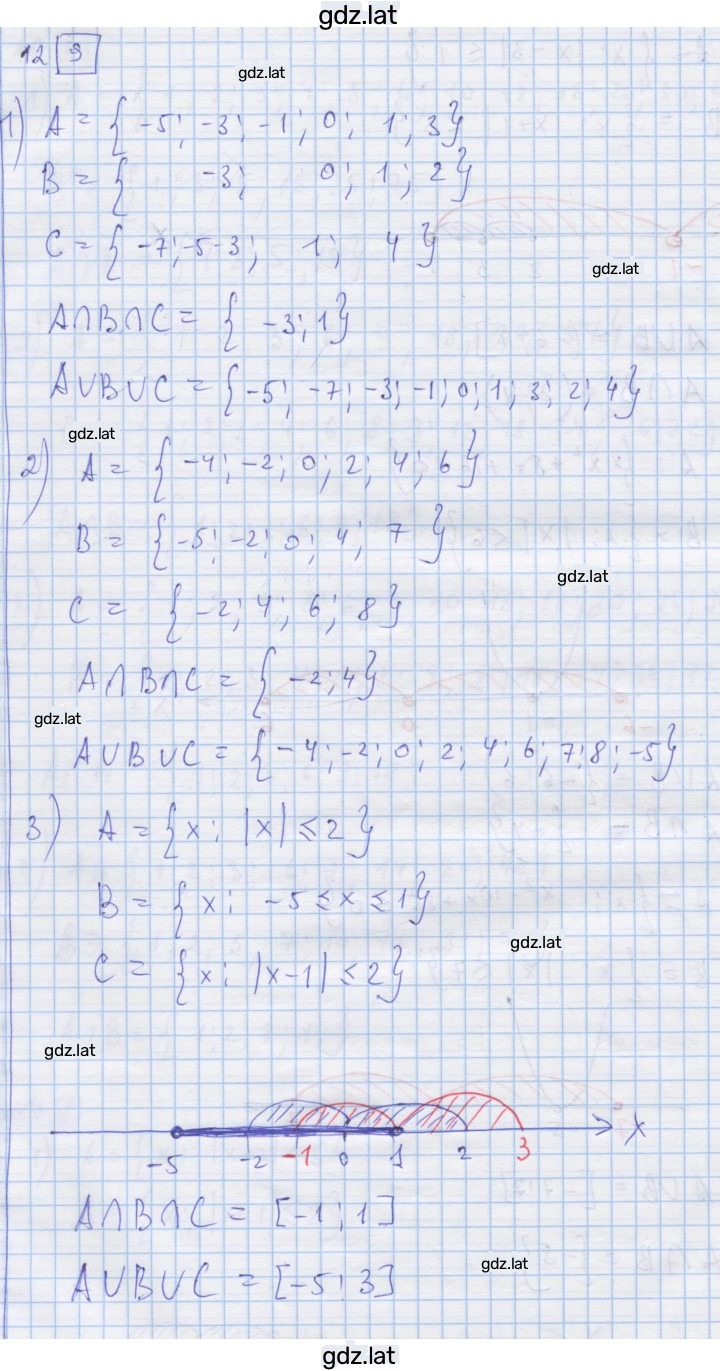 gdz.lat
12 9
gdz.lat
1) A = { -5; -3; -1; 0; 1; 3}
B = { -3; 0; 1; 2}
C = { -7; -5 -3; 1; 4}
gdz.lat
A∩B∩C = { -3; 1}
A∪B∪C = {-5; -7; -3; -1; 0; 1; 3; 2; 4}
gdz.lat
2) A = { -4; -2; 0; 2; 4; 6}
B = {-5; -2; 0; 4; 7}
gdz.lat
C = {-2; 4; 6; 8}
A∩B∩C = { -2; 4}
gdz.lat
A∪B∪C = {-4; -2; 0; 2; 4; 6; 7; 8; -5}
3) A = {x: |x| ≤ 2}
B = {x: -5 ≤ x ≤ 1}
gdz.lat
C = {x: |x-1| ≤ 2}
gdz.lat
-5 -2 -1 0 1 2 3 x
A∩B∩C = [-1; 1]
gdz.lat
A∪B∪C = [-5; 3]
gdz.lat